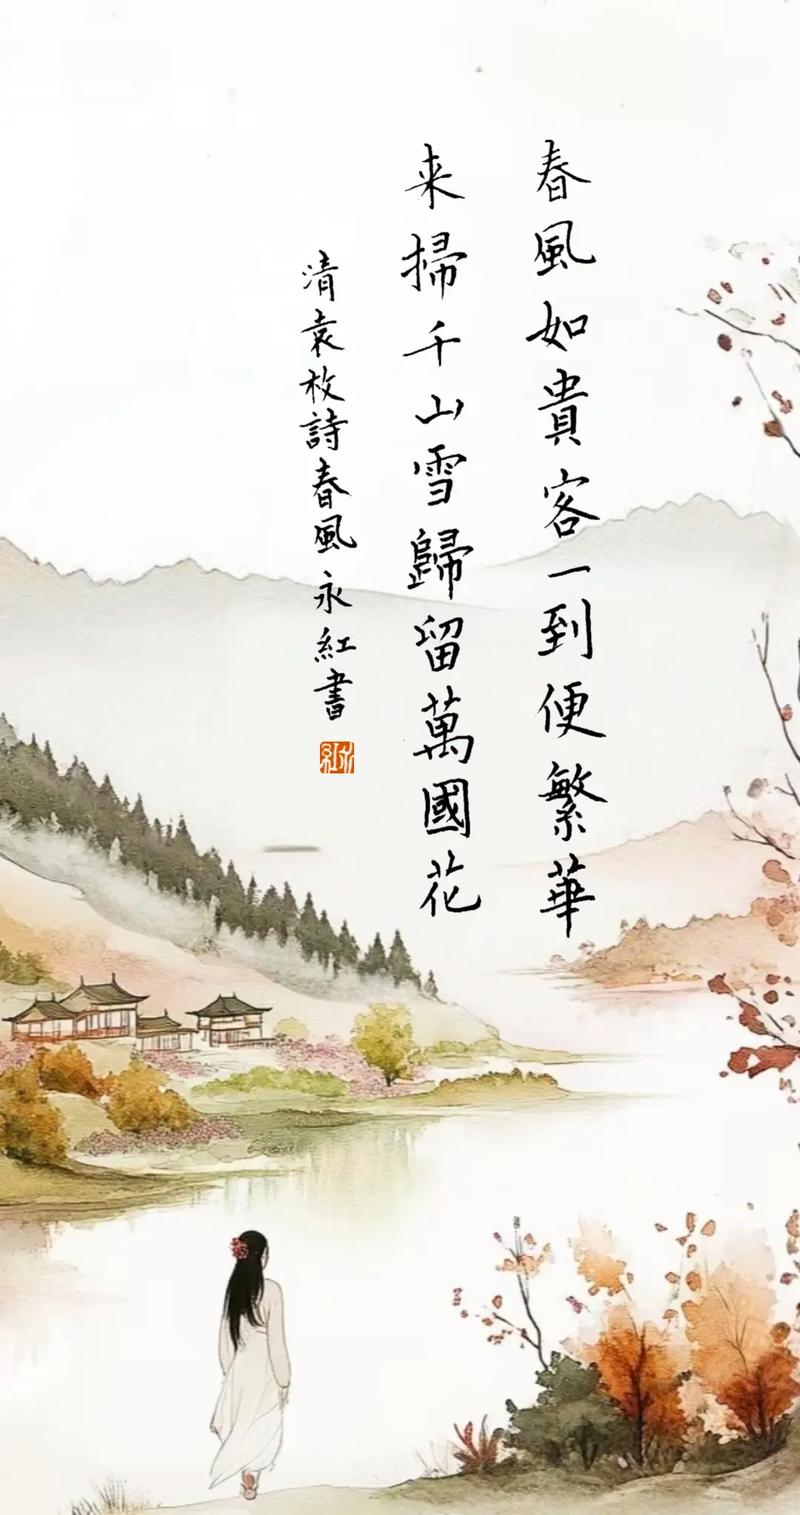 春風如貴客一到便繁華
来掃千山雪歸留萬國花
清袁枚詩春風永紅書